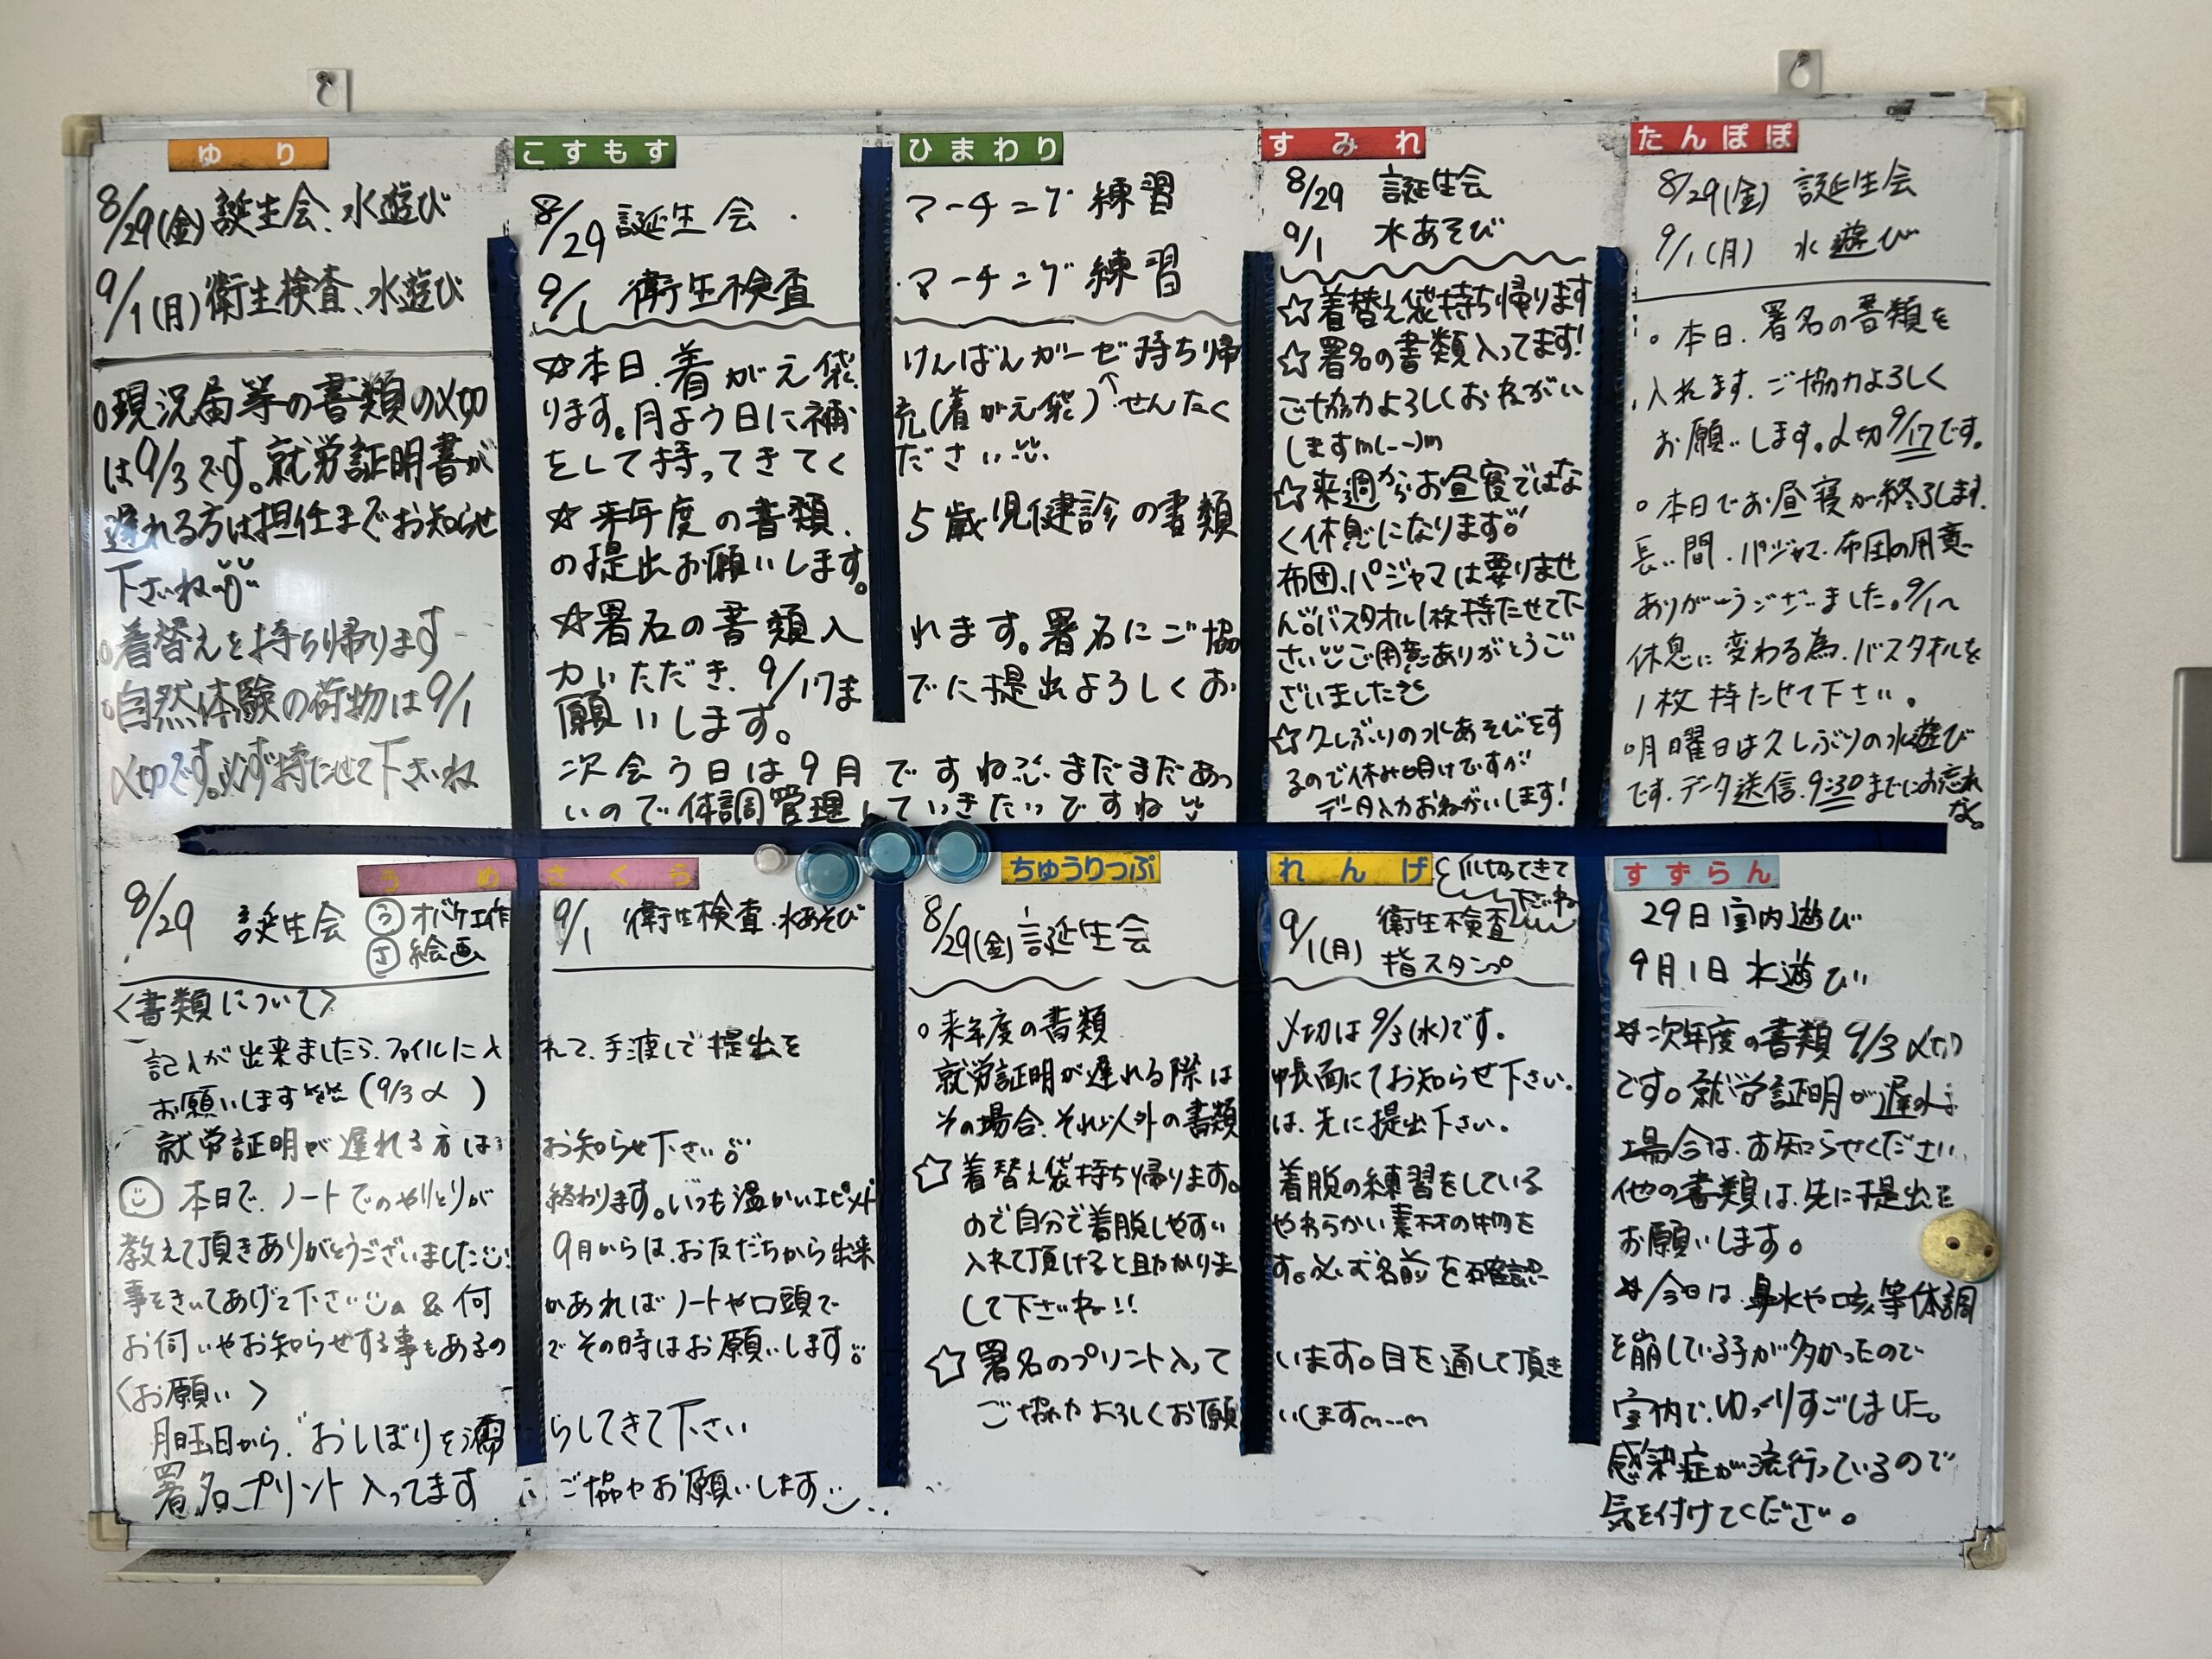 ゆり
8/29(金)誕生会、水遊び
9/1(月)衛生検査、水遊び
○現況届等の書類の〆切
は9/3です。就労証明書が
遅れる方は担任までお知らせ
下さいね
○着替えを持ち帰ります
○自然体験の荷物は9/1
〆切です。必ず持たせて下さいね
こすもす ひまわり
8/29 誕生会. マーチング 練習
9/1 衛生検査.マーチング 練習
☆本日.着がえ袋.けんばんガーゼ持ち帰
ります。月よう日に補充(着がえ袋)↑せんたく
をして持ってきてください
☆来年度の書類.5歳児健診の書類
の提出お願いします。
☆署名の書類入れます。署名にご協
力いただき.9/17までに提出よろしくお
願いします。
次会う日は9月ですね まだまだあつ
いので体調管理していきたいですね
すみれ
8/29 誕生会
9/1 水あそび
☆着替え袋持ち帰ります
☆署名の書類入ってます!
ご協力よろしくおねがい
しますm(--)m
☆来週からお昼寝ではな
く休息になります
布団、パジャマは要りませ
ん。バスタオル1枚持たせて下
さい ご用意ありがとうご
ざいました
☆久しぶりの水あそびをす
るので休み明けですが
データ入力おねがいします!
たんぽぽ
8/29(金) 誕生会
9/1(月) 水遊び
○本日.署名の書類を
入れます.ご協力よろしく
お願いします。〆切9/17です。
○本日でお昼寝が終了します.
長い間.パジャマ.布団の用意
ありがとうございました。9/1〜
休息に変わる為.バスタオルを
1枚持たせて下さい。
○月曜日は久しぶりの水遊び
です.データ送信.9:30までにお忘れ
なく。
うめ さくら
8/29 誕生会 ㋒オバケ工作 9/1 衛生検査.水あそび
㋚絵画
<書類について>
記入が出来ましたら.ファイルに入れて、手渡しで提出を
お願いします (9/3〆)
就労証明が遅れる方はお知らせ下さい
本日で、ノートでのやりとりが終わります。いつも温かいエピソード
教えて頂きありがとうございました 9月からは、お友だちから出来
事をきいてあげて下さい & 何かあればノートや口頭で
お伺いやお知らせする事もあるのでその時はお願いします
<お願い>
月曜日から.おしぼりを濡らしてきて下さい
署名プリント入ってます ご協力お願いします
ちゅうりっぷ れんげ
爪切ってきて
下さいね
8/29(金)誕生会 9/1(月) 衛生検査
指スタンプ
○来年度の書類 〆切は9/3(水)です。
就労証明が遅れる際は 帳面にてお知らせ下さい.
その場合.それ以外の書類は、先に提出下さい。
☆着替え袋持ち帰ります。着脱の練習をしている
ので自分で着脱しやすい やわらかい素材の物を
入れて頂けると助かります。必ず名前を確認
して下さいね!!
☆署名のプリント入っています。目を通して頂き
ご協力よろしくお願いしますm--m
すずらん
29日室内遊び
9月1日 水遊び
☆次年度の書類9/3〆切
です。就労証明が遅れる
場合は.お知らせください.
他の書類は.先に提出を
お願いします。
☆今日は.鼻水や咳等体調
を崩している子が多かったので
室内で.ゆっくりすごしました。
感染症が流行っているので
気を付けてください。